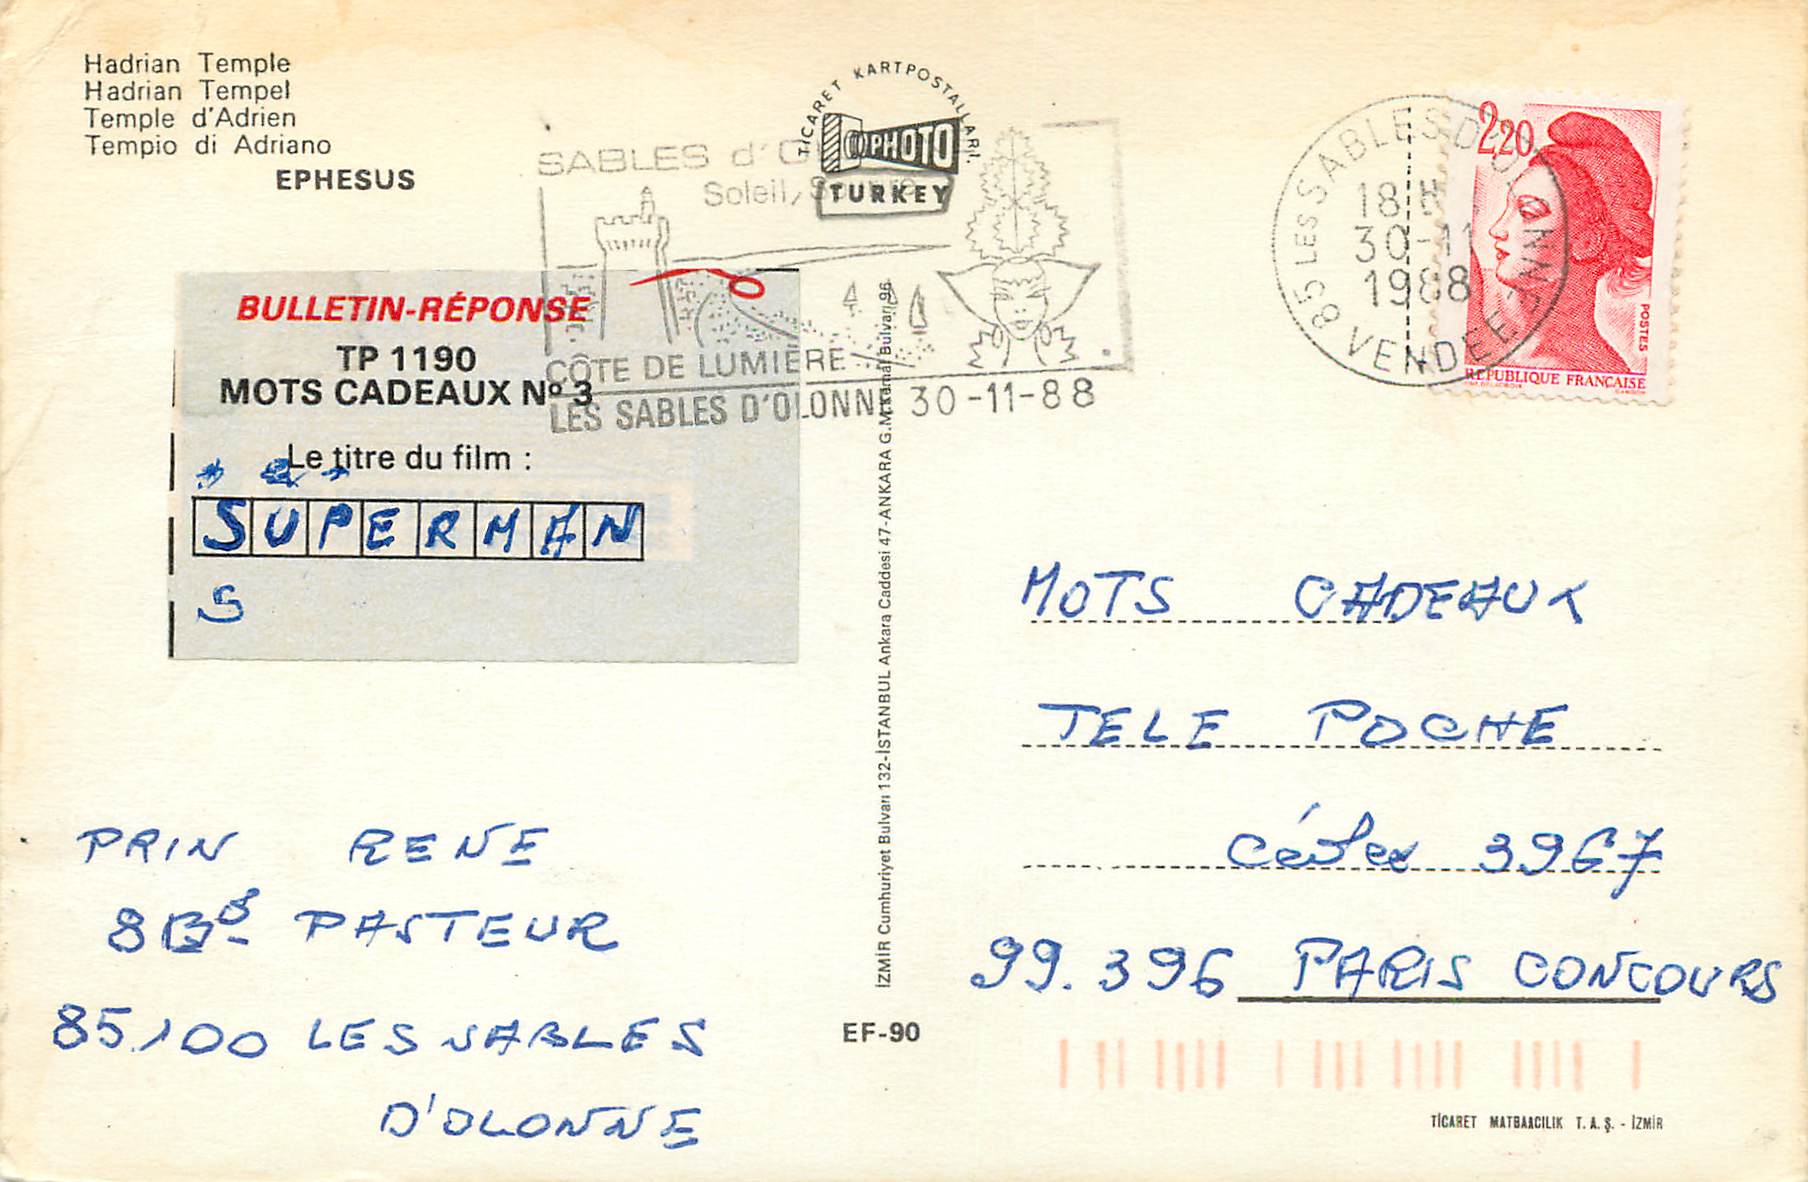 Hadrian Temple
Hadrian Tempel
Temple d'Adrien
Tempio di Adriano
EPHESUS
TİCARET KARTPOSTALLARI.
PHOTO
TURKEY
SABLES d'O
Soleil,
CÔTE DE LUMIÈRE
LES SABLES D'OLONNE 30-11-88
85 LES SABLES D'OLONNE
18 H
30-11
1988
VENDEE
2,20
POSTES
RÉPUBLIQUE FRANÇAISE
BULLETIN-RÉPONSE
TP 1190
MOTS CADEAUX Nº 3
Le titre du film :
SUPERMAN
S
MOTS CADEAUX
TELE POCHE
Cédex 3967
99.396 PARIS CONCOURS
PRIN RENE
8 Bᵈ PASTEUR
85100 LES SABLES
D'OLONNE
İZMİR Cumhuriyet Bulvarı 132-İSTANBUL Ankara Caddesi 47-ANKARA G.M.Kemal Bulvarı 96
EF-90
TİCARET MATBAACILIK T. A. Ş. - İZMİR